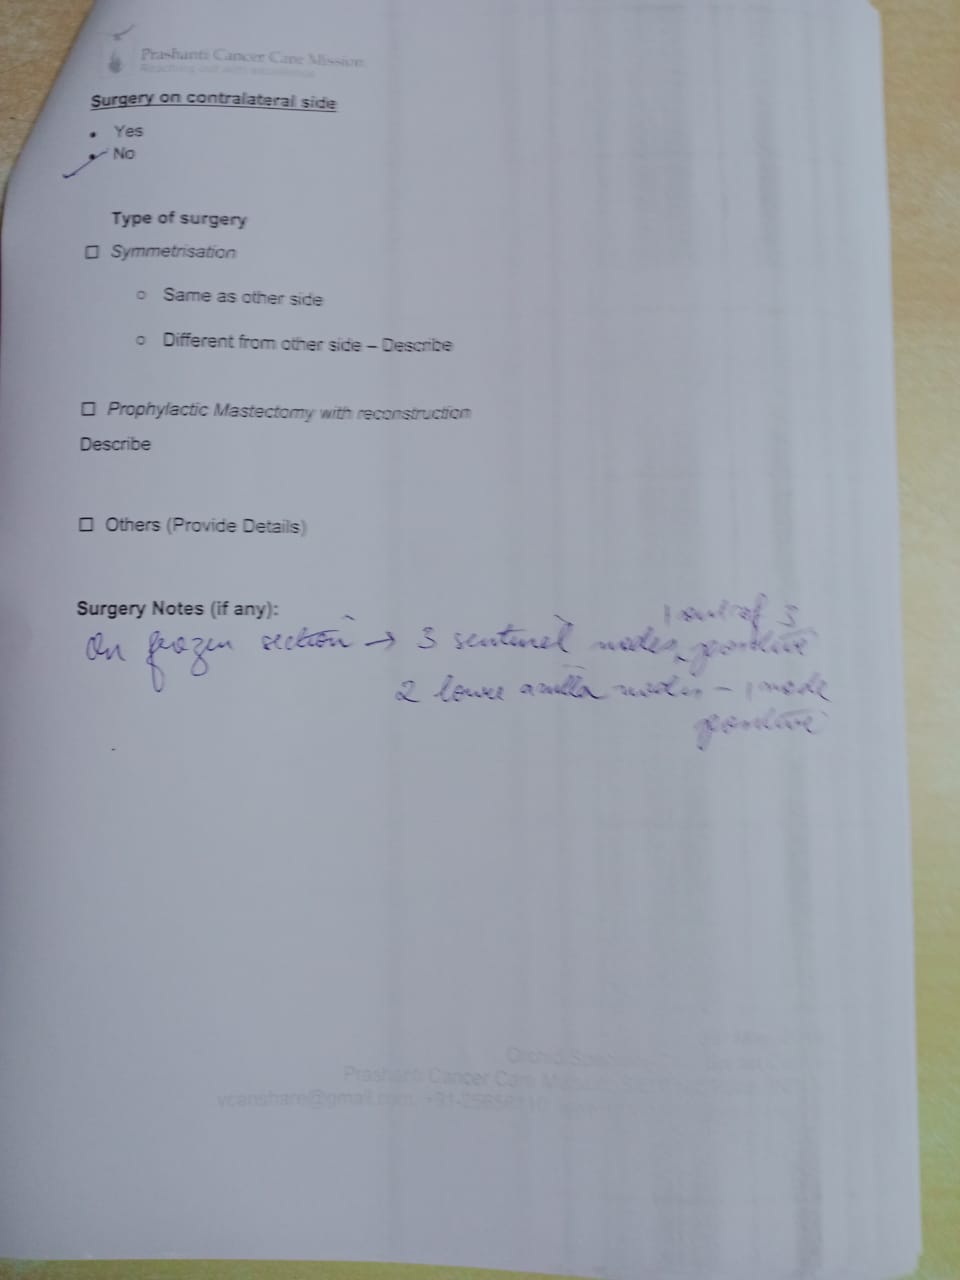 Prashanti Cancer Care Mission
Reaching out with excellence
Surgery on contralateral side
• Yes
• No
Type of surgery
☐ Symmetrisation
○ Same as other side
○ Different from other side – Describe
☐ Prophylactic Mastectomy with reconstruction
Describe
☐ Others (Provide Details)
Surgery Notes (if any):
1 out of 3
On frozen section → 3 sentinel nodes, positive
2 lower axilla nodes – 1 node
positive
Prashanti Cancer Care
vcanshare@gmail.com